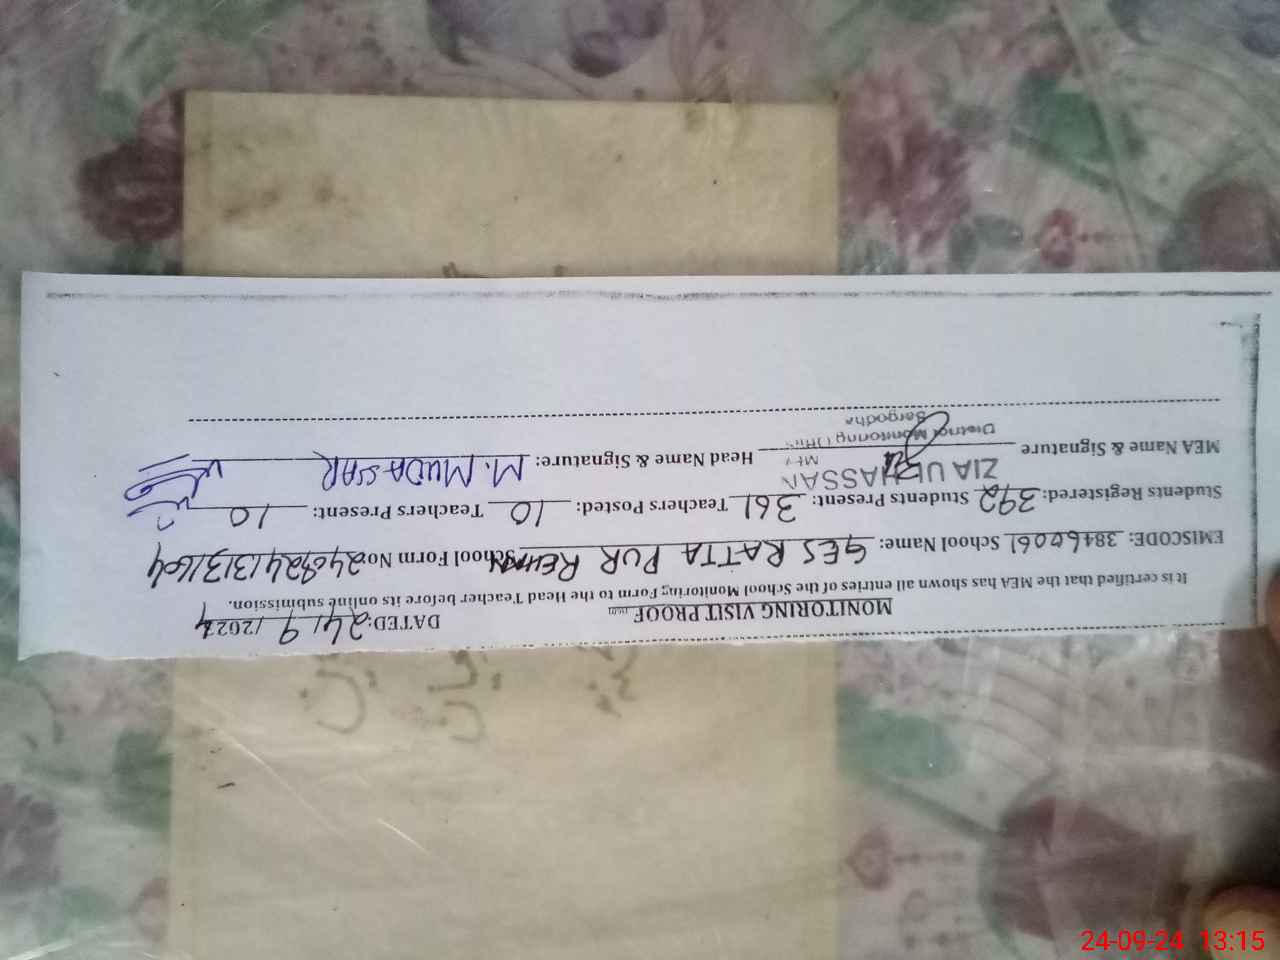 MONITORING VISIT PROOF
DATED: 24/9/2024
It is certified that the MEA has shown all entries of the School Monitoring Form to the Head Teacher before its online submission.
EMISCODE: 38460061 School Name: GES RATTA PUR REHAN School Form No
Students Registered: 392 Students Present: 361 Teachers Posted: 10 Teachers Present: 10
ZIA UL HASSAN
MEA Name & Signature Head Name & Signature: M. MUDASSAR
District Monitoring Office
Sargodha
24-09-24 13:15